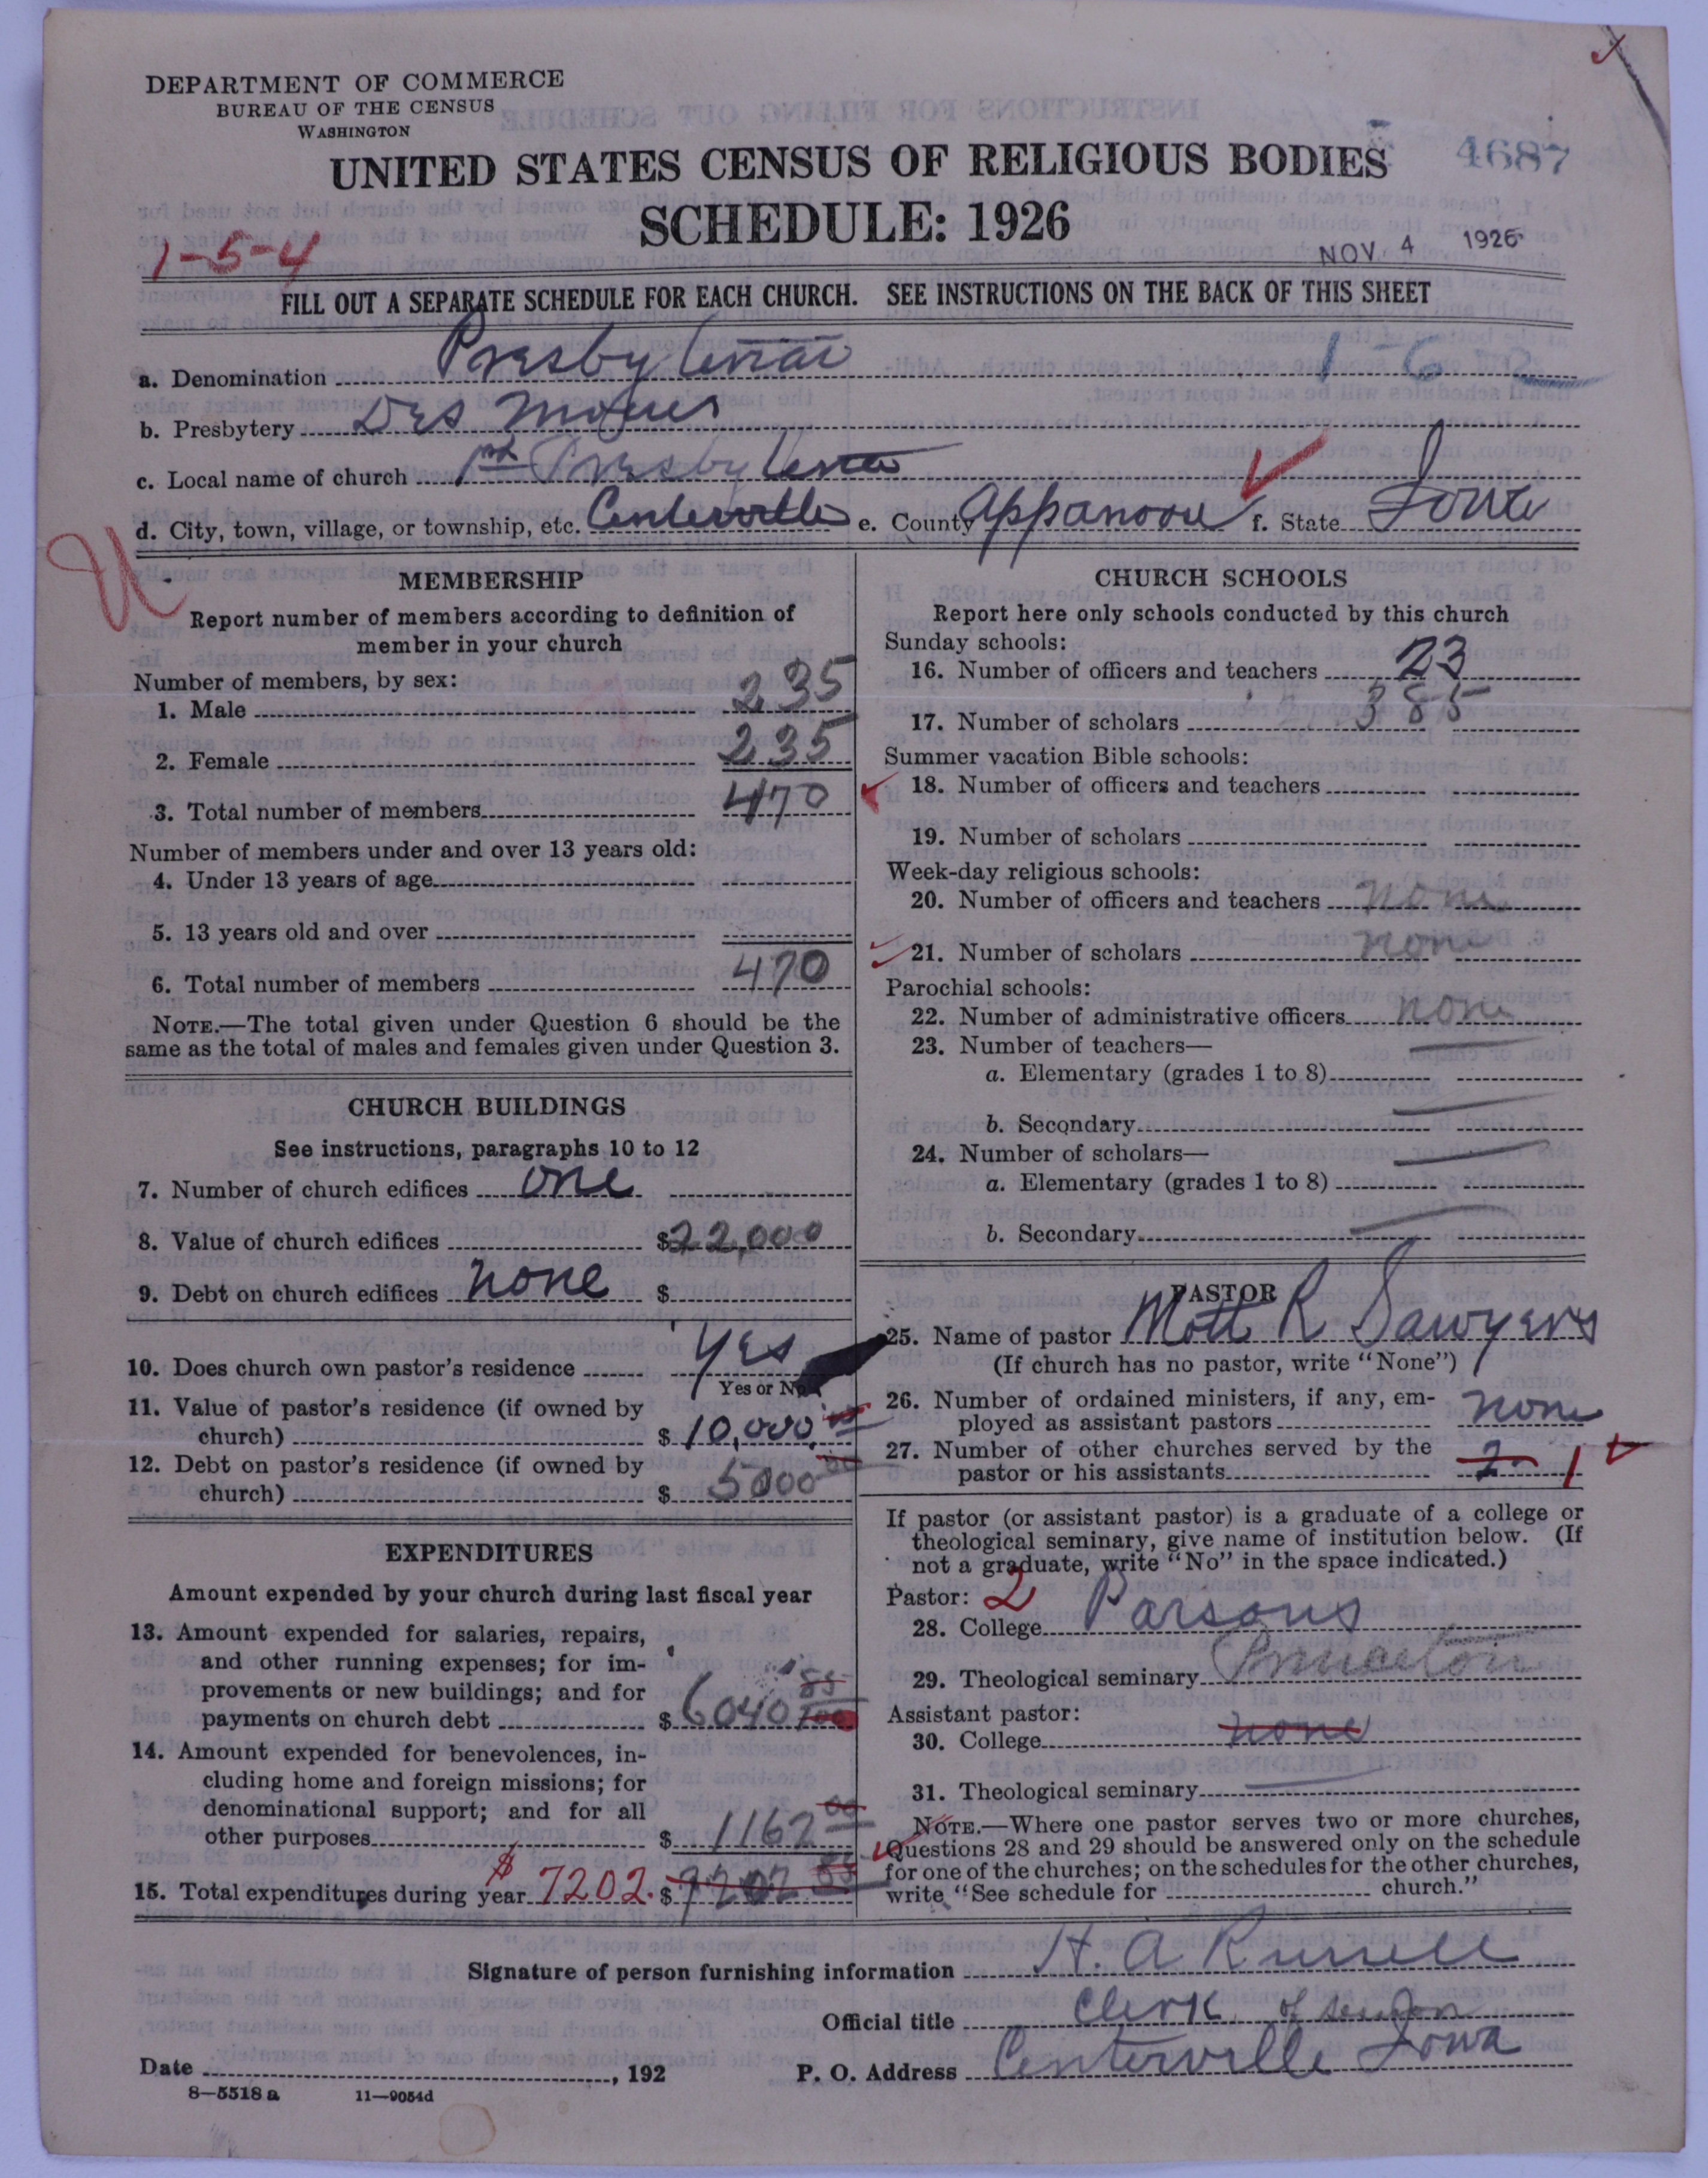 DEPARTMENT OF COMMERCE
BUREAU OF THE CENSUS
WASHINGTON
UNITED STATES CENSUS OF RELIGIOUS BODIES
4687
SCHEDULE: 1926
1-5-4
NOV. 4 1926
FILL OUT A SEPARATE SCHEDULE FOR EACH CHURCH. SEE INSTRUCTIONS ON THE BACK OF THIS SHEET
a. Denomination Presbyterian 1-6-2
b. Presbytery Des Moines
c. Local name of church 1st Presbyterian
d. City, town, village, or township, etc. Centerville e. County Appanoose f. State Iowa
MEMBERSHIP
Report number of members according to definition of
member in your church
Number of members, by sex:
1. Male 235
2. Female 235
3. Total number of members 470
Number of members under and over 13 years old:
4. Under 13 years of age
5. 13 years old and over
6. Total number of members 470
NOTE.—The total given under Question 6 should be the
same as the total of males and females given under Question 3.
CHURCH BUILDINGS
See instructions, paragraphs 10 to 12
7. Number of church edifices one
8. Value of church edifices $22,000
9. Debt on church edifices none $
10. Does church own pastor's residence yes
Yes or No
11. Value of pastor's residence (if owned by
church) $ 10,000.00
12. Debt on pastor's residence (if owned by
church) $ 5000 00
EXPENDITURES
Amount expended by your church during last fiscal year
13. Amount expended for salaries, repairs,
and other running expenses; for im-
provements or new buildings; and for
payments on church debt $ 6040 85
14. Amount expended for benevolences, in-
cluding home and foreign missions; for
denominational support; and for all
other purposes $ 1162 00
15. Total expenditures during year $ 7202. $ 7202 85
CHURCH SCHOOLS
Report here only schools conducted by this church
Sunday schools:
16. Number of officers and teachers 23
17. Number of scholars 385
Summer vacation Bible schools:
18. Number of officers and teachers
19. Number of scholars
Week-day religious schools:
20. Number of officers and teachers none
21. Number of scholars none
Parochial schools:
22. Number of administrative officers none
23. Number of teachers—
a. Elementary (grades 1 to 8)
b. Secondary
24. Number of scholars—
a. Elementary (grades 1 to 8)
b. Secondary
PASTOR
25. Name of pastor Mott R Sawyers
(If church has no pastor, write "None")
26. Number of ordained ministers, if any, em-
ployed as assistant pastors none
27. Number of other churches served by the
pastor or his assistants 2 1
If pastor (or assistant pastor) is a graduate of a college or
theological seminary, give name of institution below. (If
not a graduate, write "No" in the space indicated.)
Pastor: 2
28. College Parsons
29. Theological seminary Princeton
Assistant pastor:
30. College none
31. Theological seminary
NOTE.—Where one pastor serves two or more churches,
Questions 28 and 29 should be answered only on the schedule
for one of the churches; on the schedules for the other churches,
write "See schedule for church."
Signature of person furnishing information H. A Russell
Official title Clerk of session
Date , 192 P. O. Address Centerville Iowa
8—5518 a 11—9054d